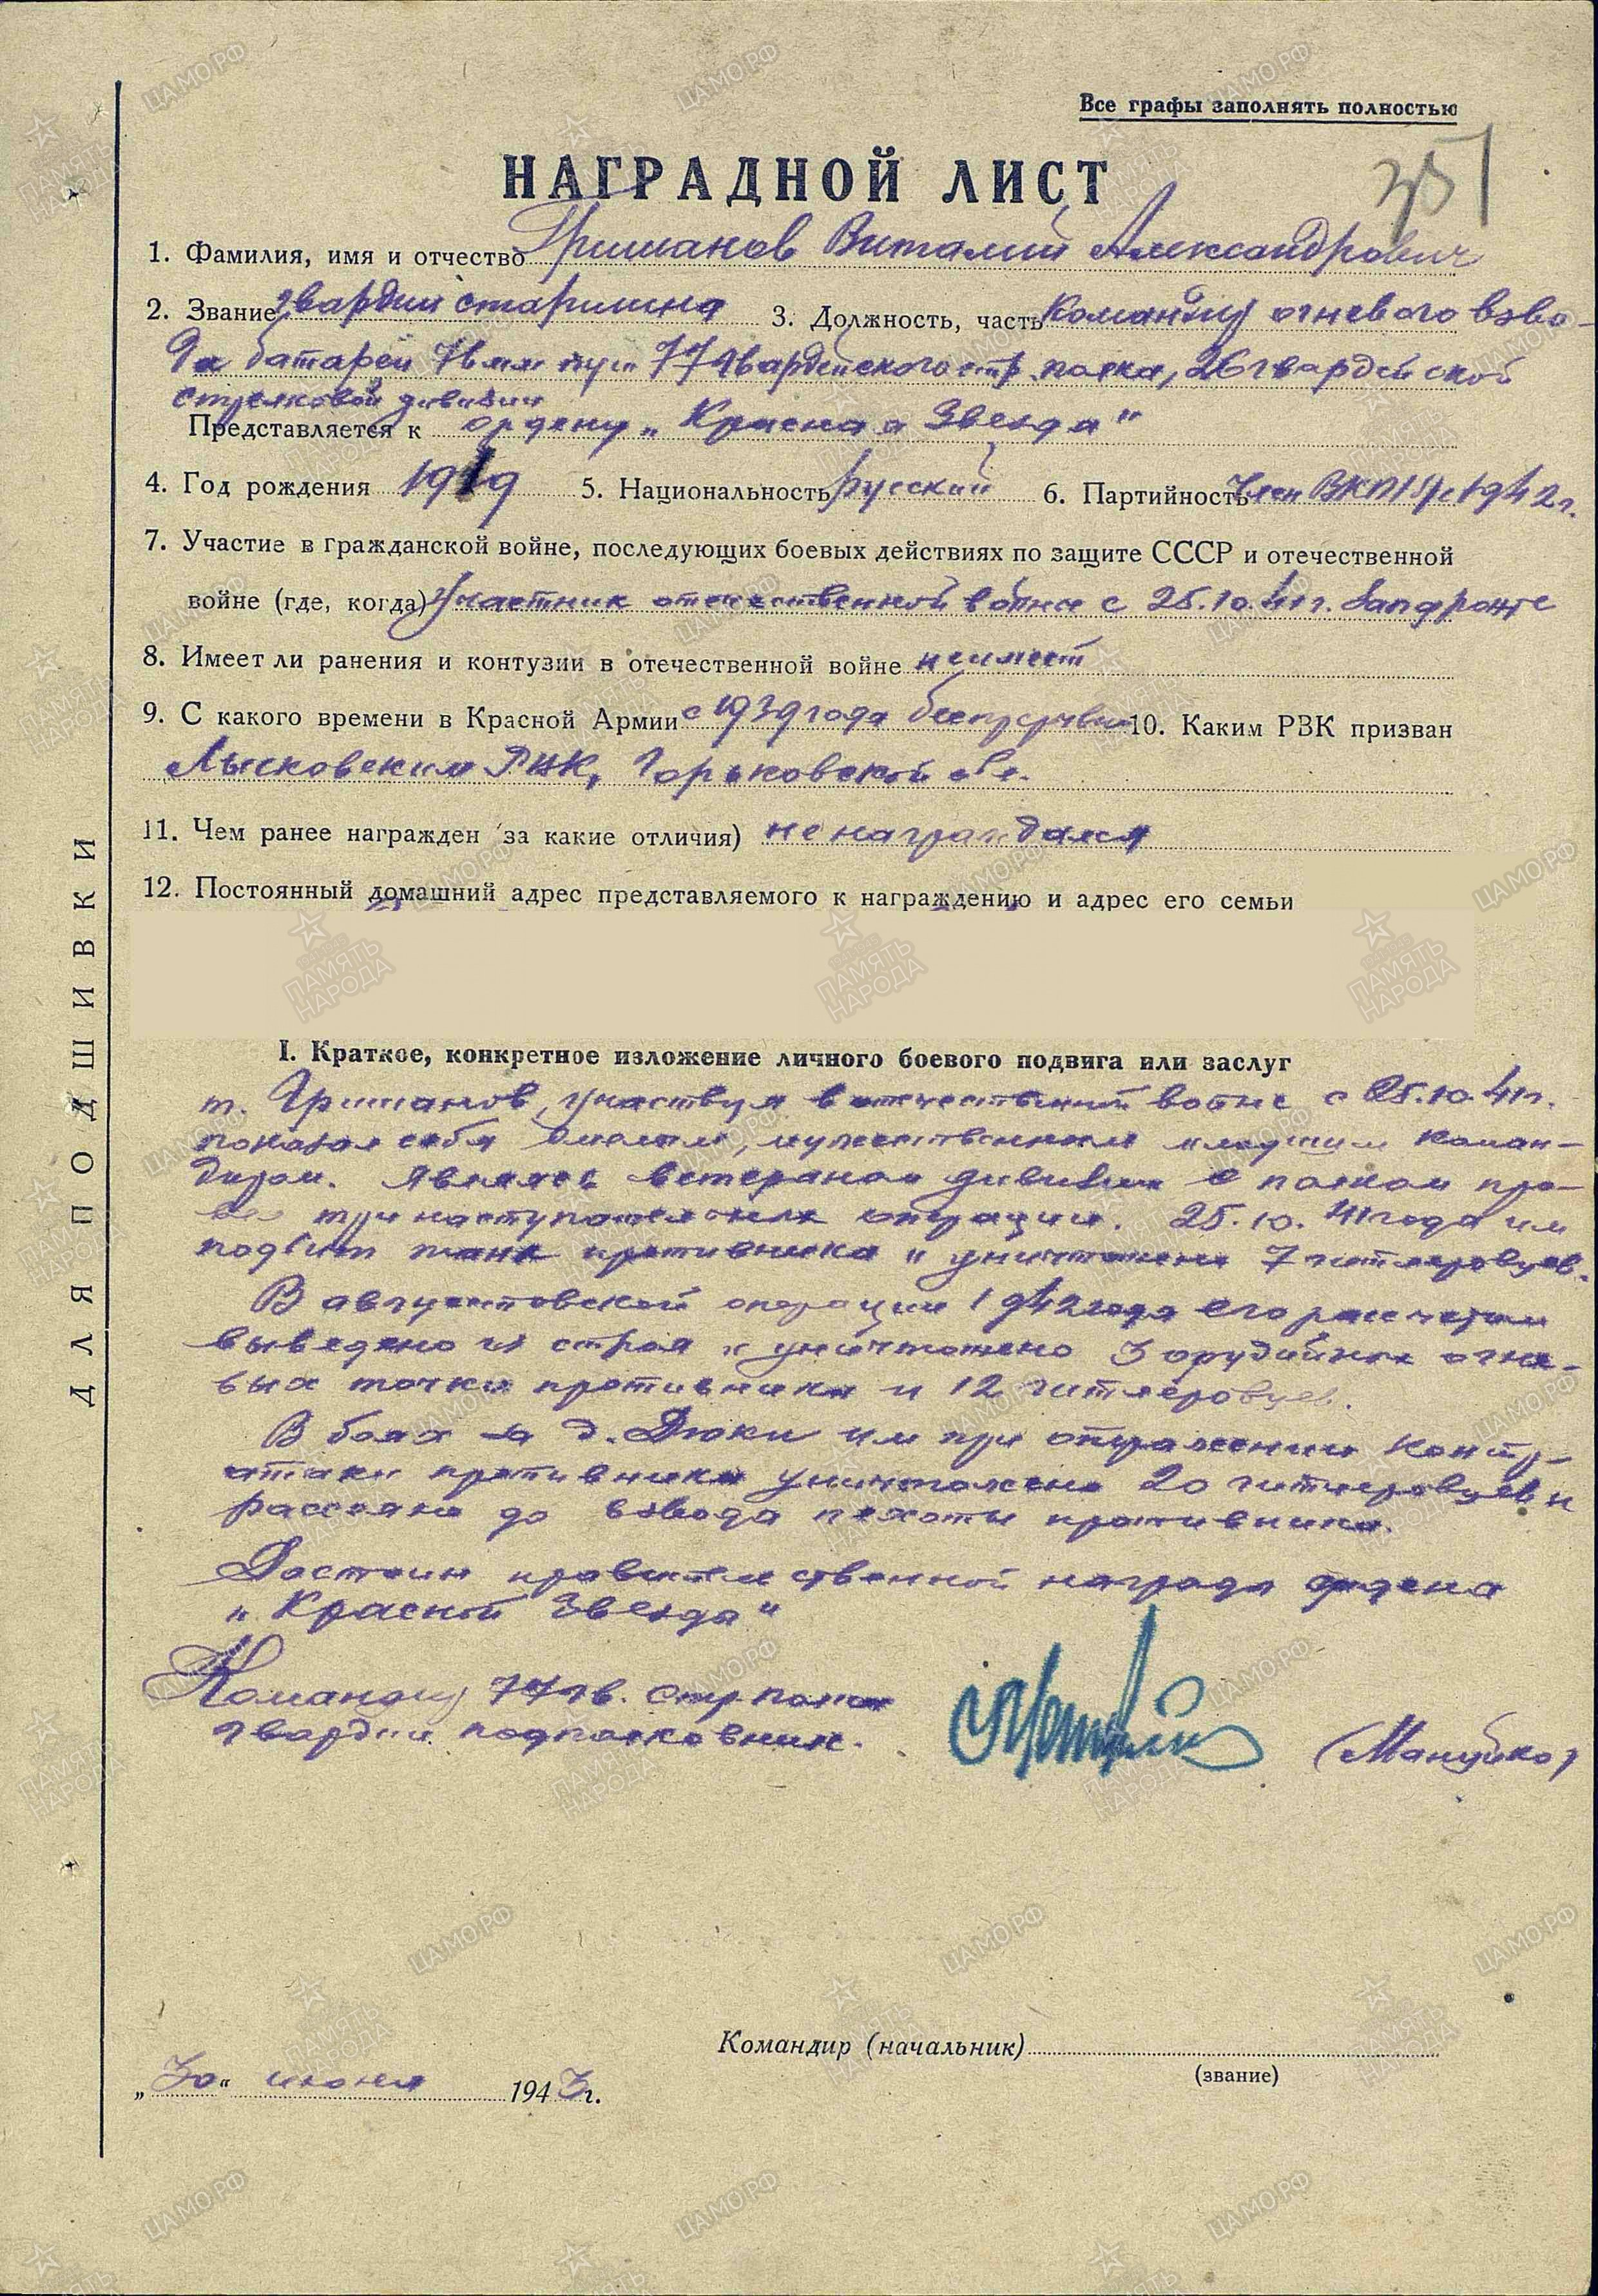 Все графы заполнять полностью
351
НАГРАДНОЙ ЛИСТ
1. Фамилия, имя и отчество Гришанов Виталий Александрович
2. Звание гвардии старшина 3. Должность, часть командир огневого взво-
да батареи 76 мм пуш 77 гвардейского стр. полка, 26 гвардейской
стрелковой дивизии
Представляется к ордену „Красная Звезда"
4. Год рождения 1919 5. Национальность русский 6. Партийность член ВКП(б) с 1942 г.
7. Участие в гражданской войне, последующих боевых действиях по защите СССР и отечественной
войне (где, когда) Участник отечественной войны с 25.10.41 г. Запфронте
8. Имеет ли ранения и контузии в отечественной войне не имеет
9. С какого времени в Красной Армии с 1939 года 10. Каким РВК призван
Лысковским РВК, Горьковской обл.
11. Чем ранее награжден за какие отличия) не награждался
12. Постоянный домашний адрес представляемого к награждению и адрес его семьи
I. Краткое, конкретное изложение личного боевого подвига или заслуг
т. Гришанов, участвуя в отечественной войне с 25.10.41 г.
показал себя смелым, мужественным младшим коман-
диром. Являясь ветераном дивизии с полком про-
вел три наступательные операции. 25.10.41 года им
подбит танк противника и уничтожено 7 гитлеровцев.
В августовской операции 1942 года его рассчетом
выведено из строя и уничтожено 3 орудийных огне-
вых точки противника и 12 гитлеровцев.
В боях за д. Дюки им при отражении контр-
атаки противника уничтожено 20 гитлеровцев и
рассеяно до взвода пехоты противника.
Достоин правительственной награды ордена
„Красной Звезда"
Командир 77 гв. стр полка
гвардии подполковник.
(Мануйло)
Командир (начальник)
(звание)
„30" июня 1943 г.
ДЛЯ ПОДШИВКИ
ЦАМО.РФ
ПАМЯТЬ НАРОДА